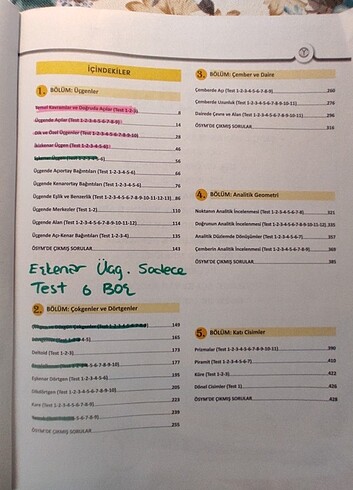 İÇİNDEKİLER
1. BÖLÜM: Üçgenler
Temel Kavramlar ve Doğruda Açılar (Test 1-2-3) 8
Üçgende Açılar (Test 1-2-3-4-5-6-7-8-9) 14
Dik ve Özel Üçgenler (Test 1-2-3-4-5-6-7-8-9-10) 28
İkizkenar Üçgen (Test 1-2-3-4-5-6) 46
Eşkenar Üçgen 56
Üçgende Açıortay Bağıntıları (Test 1-2-3-4-5-6-7) 66
Üçgende Kenarortay Bağıntıları (Test 1-2-3-4-5-6) 76
Üçgende Eşlik ve Benzerlik (Test 1-2-3-4-5-6-7-8-9-10-11-12-13) 86
Üçgende Merkezler (Test 1-2) 110
Üçgende Alan (Test 1-2-3-4-5-6-7-8-9-10-11-12) 114
Üçgende Açı-Kenar Bağıntıları (Test 1-2-3-4) 135
ÖSYM'DE ÇIKMIŞ SORULAR 143
Eşkenar Üçg. Sadece
Test 6 BOŞ
2. BÖLÜM: Çokgenler ve Dörtgenler
149
165
Deltoid (Test 1-2-3) 173
177
Eşkenar Dörtgen (Test 1-2-3-4-5) 195
Dikdörtgen (Test 1-2-3-4-5-6-7-8-9-10) 205
Kare (Test 1-2-3-4-5-6-7-8) 223
239
ÖSYM'DE ÇIKMIŞ SORULAR 255
3. BÖLÜM: Çember ve Daire
Çemberde Açı (Test 1-2-3-4-5-6-7-8-9) 260
Çemberde Uzunluk (Test 1-2-3-4-5-6-7-8-9-10-11) 276
Dairede Çevre ve Alan (Test 1-2-3-4-5-6-7-8-9-10-11) 296
ÖSYM'DE ÇIKMIŞ SORULAR 316
4. BÖLÜM: Analitik Geometri
Noktanın Analitik İncelenmesi (Test 1-2-3-4-5-6-7-8) 321
Doğrunun Analitik İncelenmesi (Test 1-2-3-4-5-6-7-8-9-10-11-12) 335
Analitik Düzlemde Dönüşümler (Test 1-2-3-4-5-6-7) 357
Çemberin Analitik İncelenmesi (Test 1-2-3-4-5-6-7-8-9) 369
ÖSYM'DE ÇIKMIŞ SORULAR 385
5. BÖLÜM: Katı Cisimler
Prizmalar (Test 1-2-3-4-5-6-7-8-9-10-11) 390
Piramit (Test 1-2-3-4-5-6-7) 410
Küre (Test 1-2-3) 422
Dönel Cisimler (Test 1) 426
ÖSYM'DE ÇIKMIŞ SORULAR 428